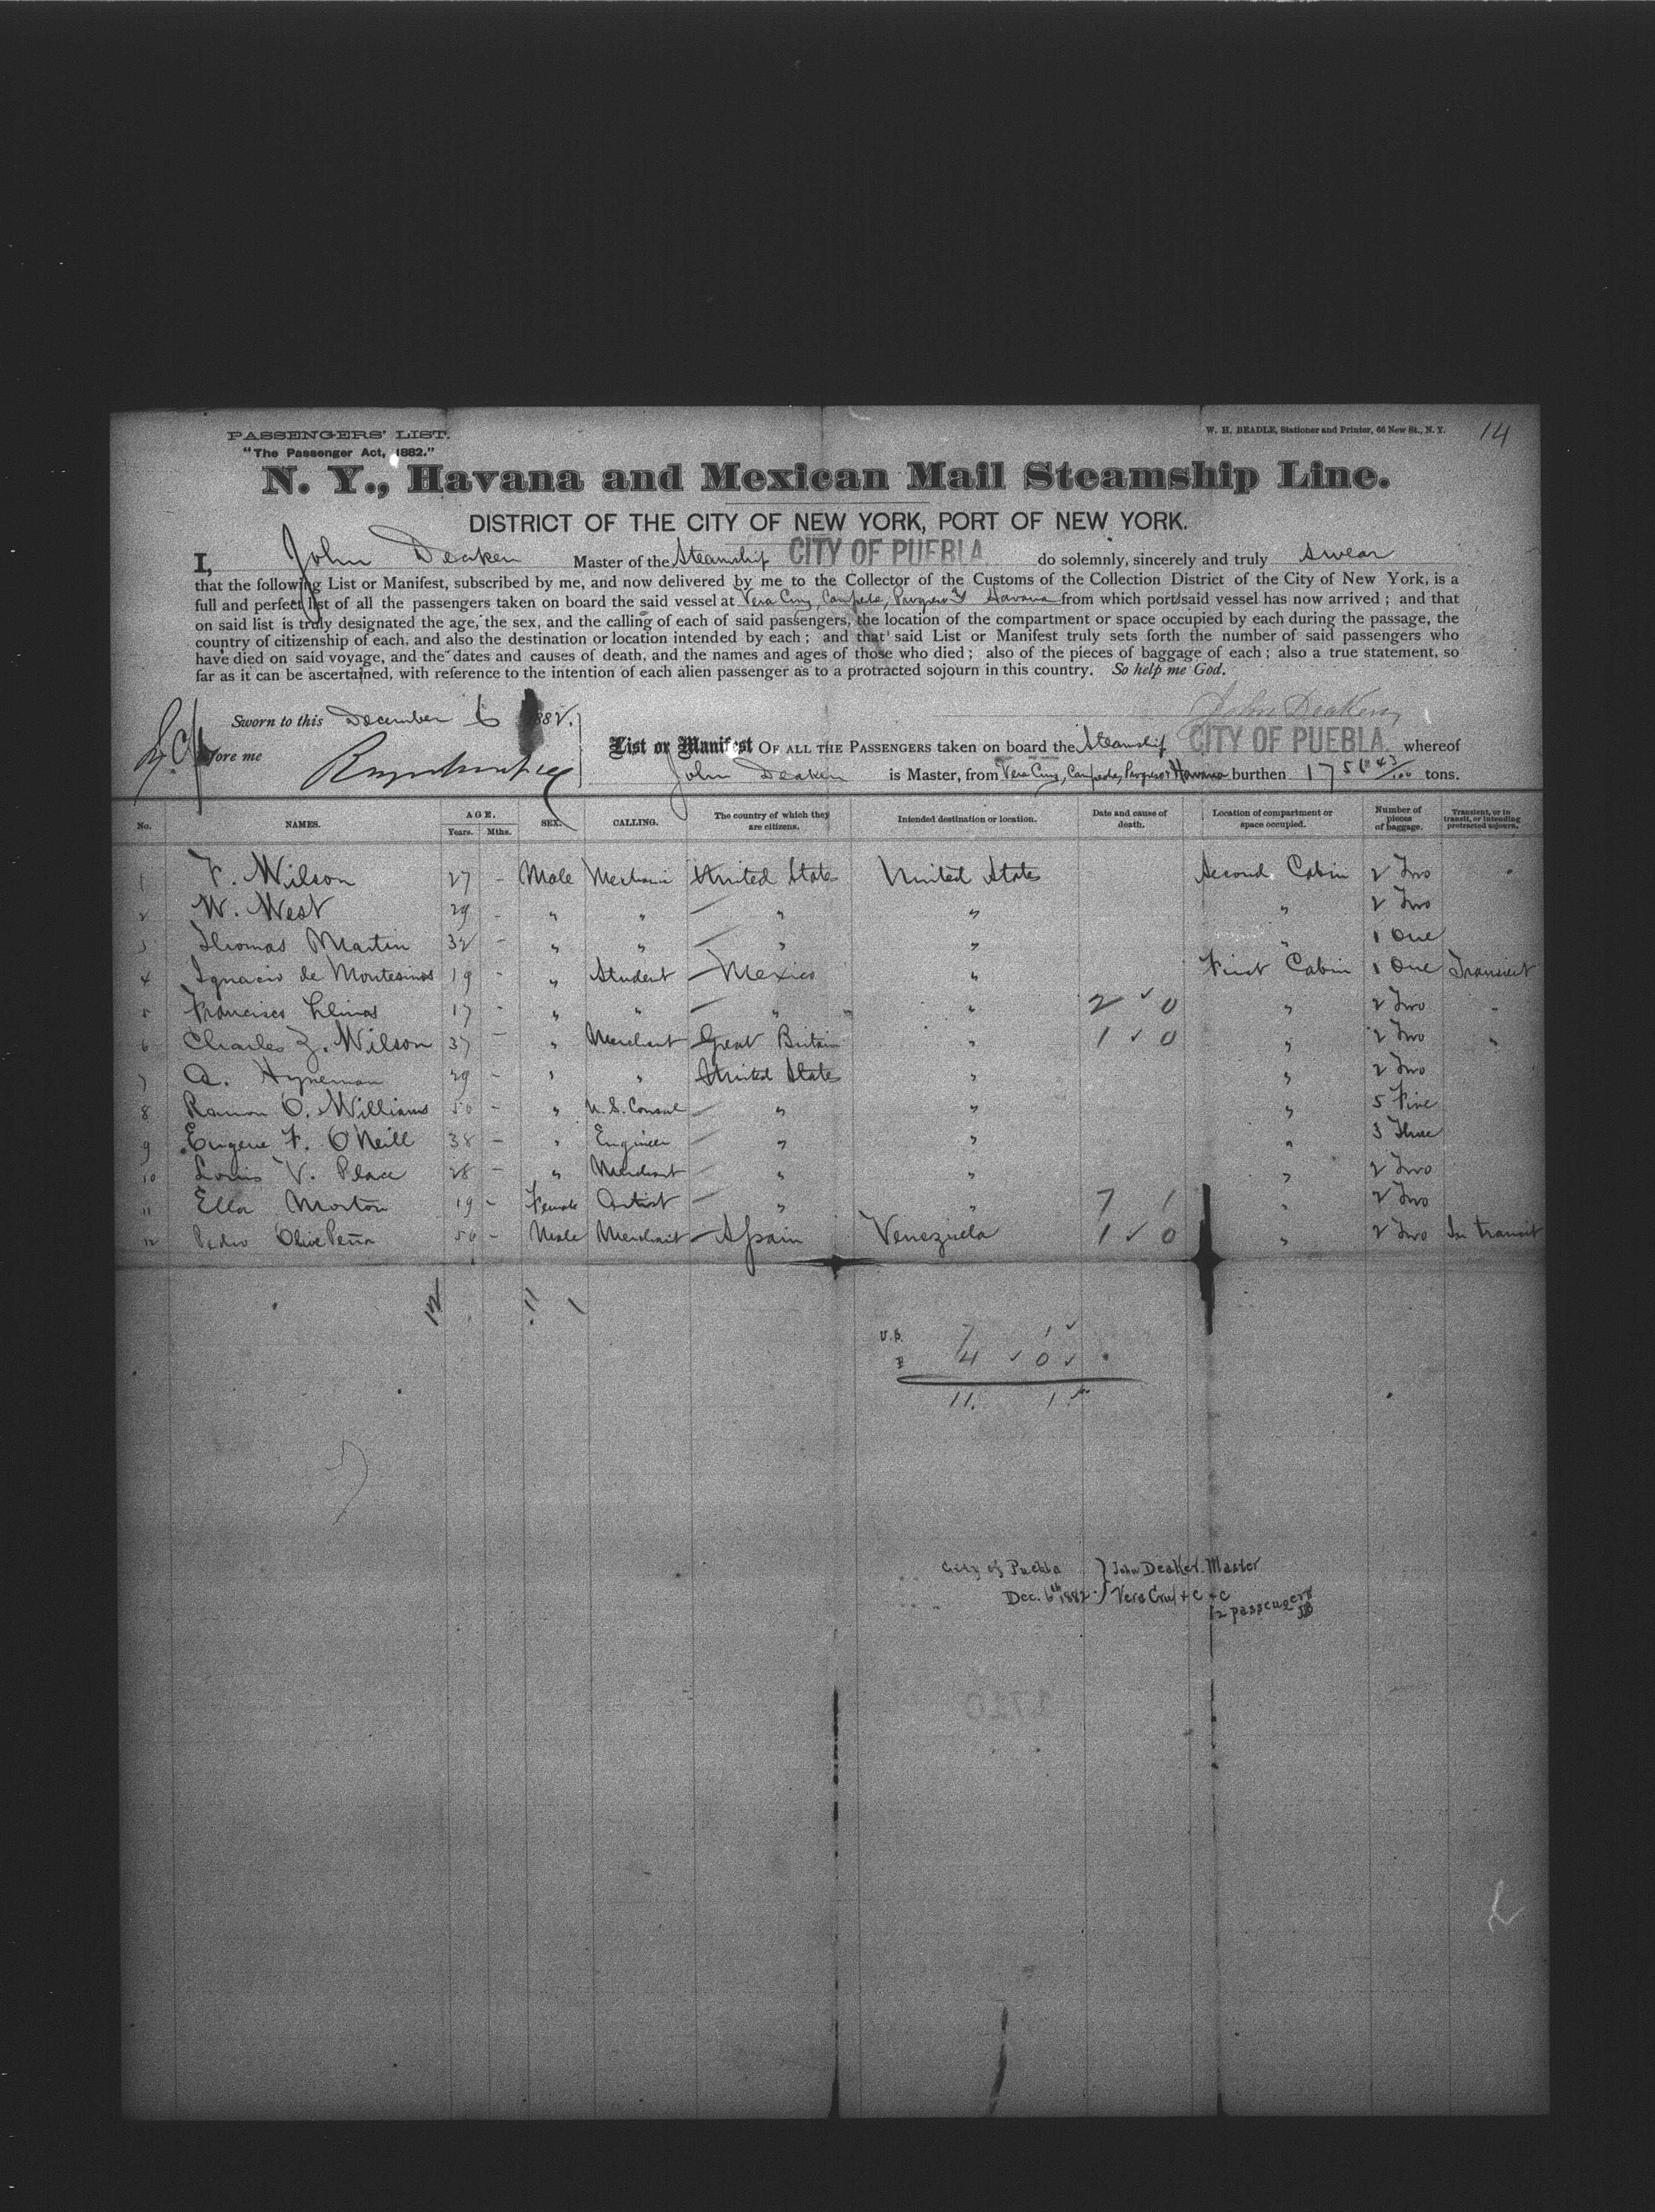 PASSENGERS' LIST.
W. H. BEADLE, Stationer and Printer, 66 New St., N. Y.
14
"The Passenger Act, 1882."
N. Y., Havana and Mexican Mail Steamship Line.
DISTRICT OF THE CITY OF NEW YORK, PORT OF NEW YORK.
I, John Deaken Master of the Steamship CITY OF PUEBLA do solemnly, sincerely and truly swear
that the following List or Manifest, subscribed by me, and now delivered by me to the Collector of the Customs of the Collection District of the City of New York, is a
full and perfect list of all the passengers taken on board the said vessel at Vera Cruz, Campeche, Progreso & Havana from which port said vessel has now arrived; and that
on said list is truly designated the age, the sex, and the calling of each of said passengers, the location of the compartment or space occupied by each during the passage, the
country of citizenship of each, and also the destination or location intended by each; and that said List or Manifest truly sets forth the number of said passengers who
have died on said voyage, and the dates and causes of death, and the names and ages of those who died; also of the pieces of baggage of each; also a true statement, so
far as it can be ascertained, with reference to the intention of each alien passenger as to a protracted sojourn in this country. So help me God.
John Deaken
Sworn to this December 6 1882.
fore me
List or Manifest OF ALL THE PASSENGERS taken on board the Steamship CITY OF PUEBLA. whereof
John Deaken is Master, from Vera Cruz, Campeche, Progreso & Havana burthen 1756 43/100 tons.
No. NAMES. AGE. Years. Mths. SEX. CALLING. The country of which they are citizens. Intended destination or location. Date and cause of death. Location of compartment or space occupied. Number of pieces of baggage. Transient, or in transit, or intending protracted sojourn.
1 F. Wilson 27 - Male Mechanic United States United States Second Cabin 2 Two "
2 W. West 29 - " " " " " 2 Two
3 Thomas Martin 32 - " " " " " 1 One
4 Ignacio de Montesinos 19 - " Student Mexico " First Cabin 1 One Transient
5 Francisco Llinas 17 - " " " " 2 ✓ 0 " 2 Two "
6 Charles Z. Wilson 37 - " Merchant Great Britain " 1 ✓ 0 " 2 Two "
7 A. Hyneman 29 - " " United States " " 2 Two
8 Ramon O. Williams 50 - " U.S. Consul " " " 5 Five
9 Eugene F. O'Neill 38 - " Engineer " " " 3 Three
10 Louis V. Place 28 - " Merchant " " " 2 Two
11 Ella Morton 19 - Female Artist " " 7 1 " 2 Two
12 Pedro Olive Peña 50 - Male Merchant Spain Venezuela 1 ✓ 0 " 2 Two In transit
12 11 1
U.S. 7 1 ✓
4 ✓ 0 ✓
11. 1
City of Puebla } John Deaken. Master
Dec. 6th 1882 } Vera Cruz + c + c
12 passengers
JB